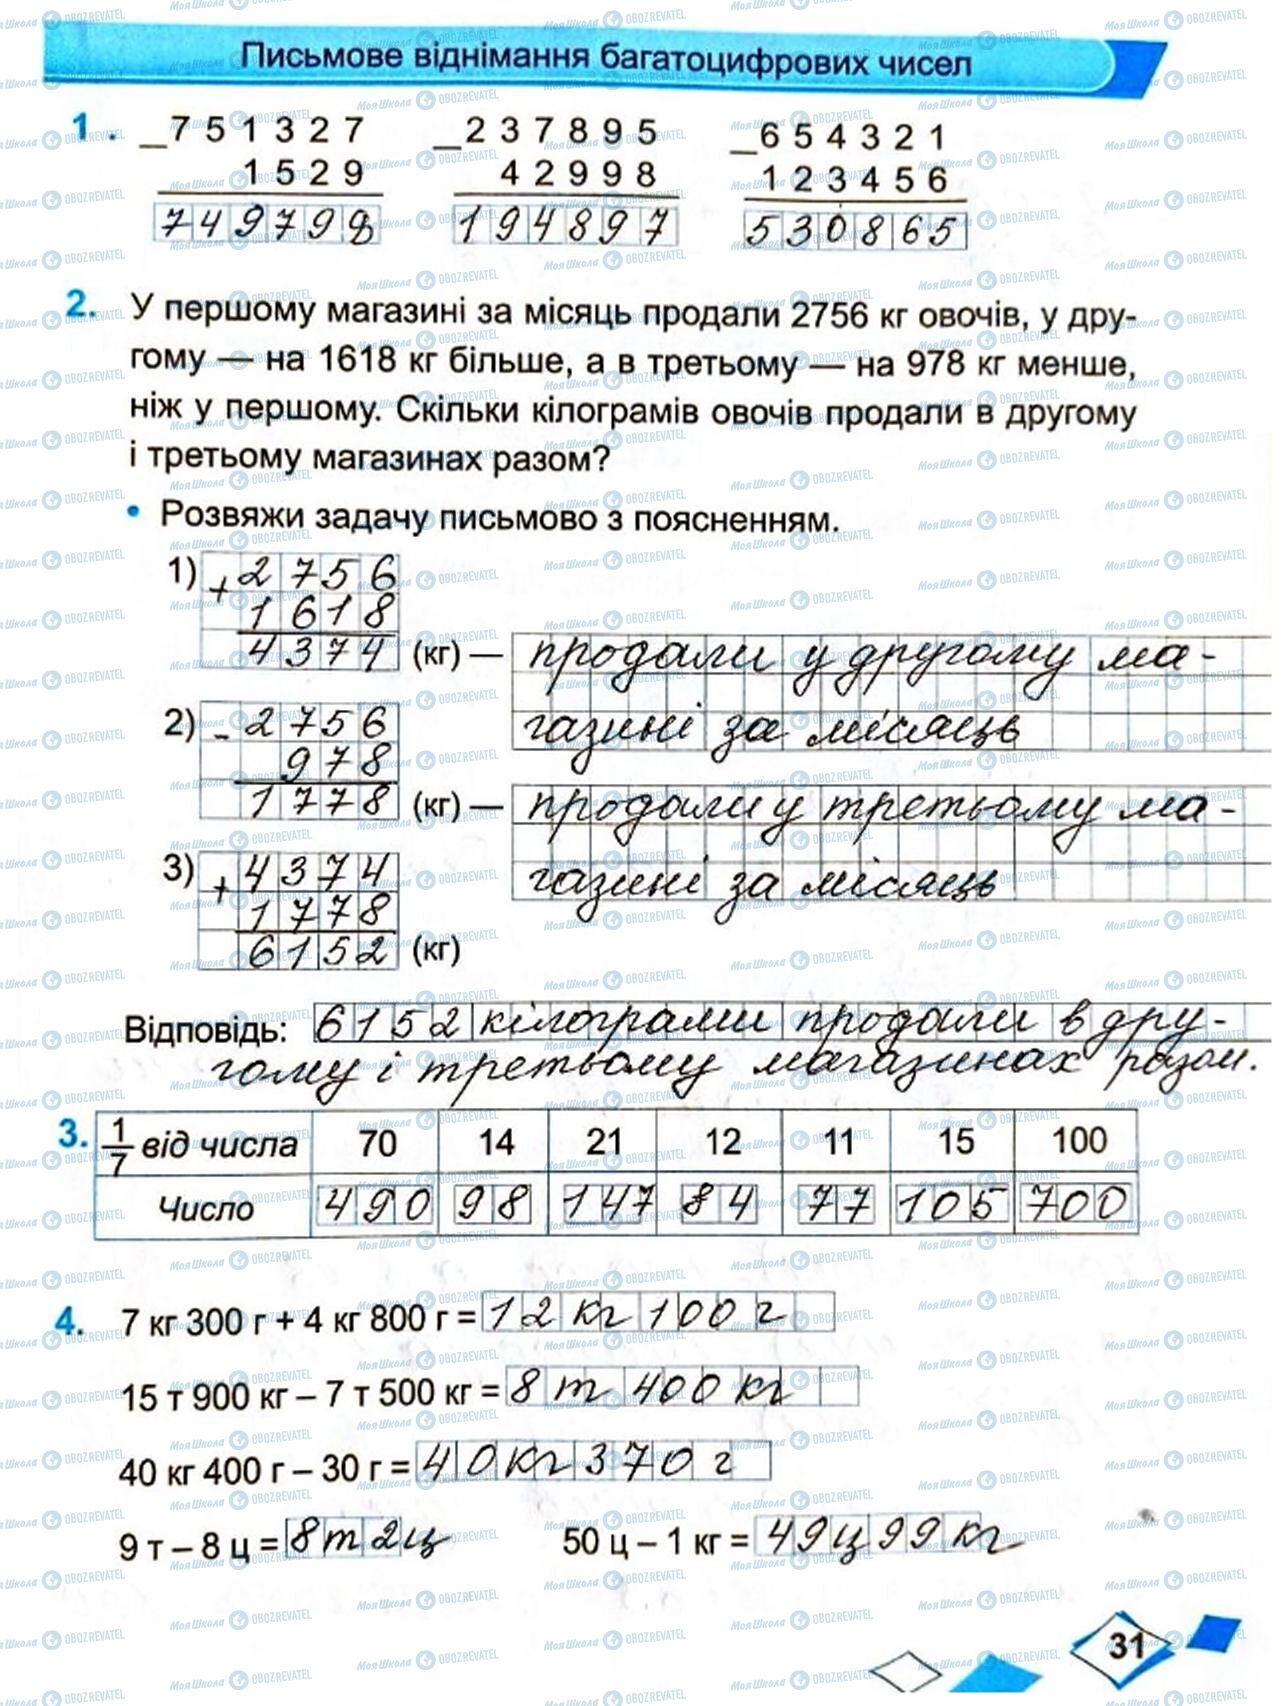 Письмове віднімання багатоцифрових чисел
1. _751327 _237895 _654321
1529 42998 123456
749798 194897 530865
2. У першому магазині за місяць продали 2756 кг овочів, у дру-
гому — на 1618 кг більше, а в третьому — на 978 кг менше,
ніж у першому. Скільки кілограмів овочів продали в другому
і третьому магазинах разом?
• Розвяжи задачу письмово з поясненням.
1) + 2756
1618
4374 (кг) — продали у другому ма-
газині за місяць
2) - 2756
978
1778 (кг) — продали у третьому ма-
газині за місяць
3) + 4374
1778
6152 (кг)
Відповідь: 6152 кілограми продали в дру-
гому і третьому магазинах разом.
3. 1/7 від числа 70 14 21 12 11 15 100
Число 490 98 147 84 77 105 700
4. 7 кг 300 г + 4 кг 800 г = 12 кг 100 г
15 т 900 кг – 7 т 500 кг = 8 т 400 кг
40 кг 400 г – 30 г = 40 кг 370 г
9 т – 8 ц = 8 т 2 ц 50 ц – 1 кг = 49 ц 99 кг
31